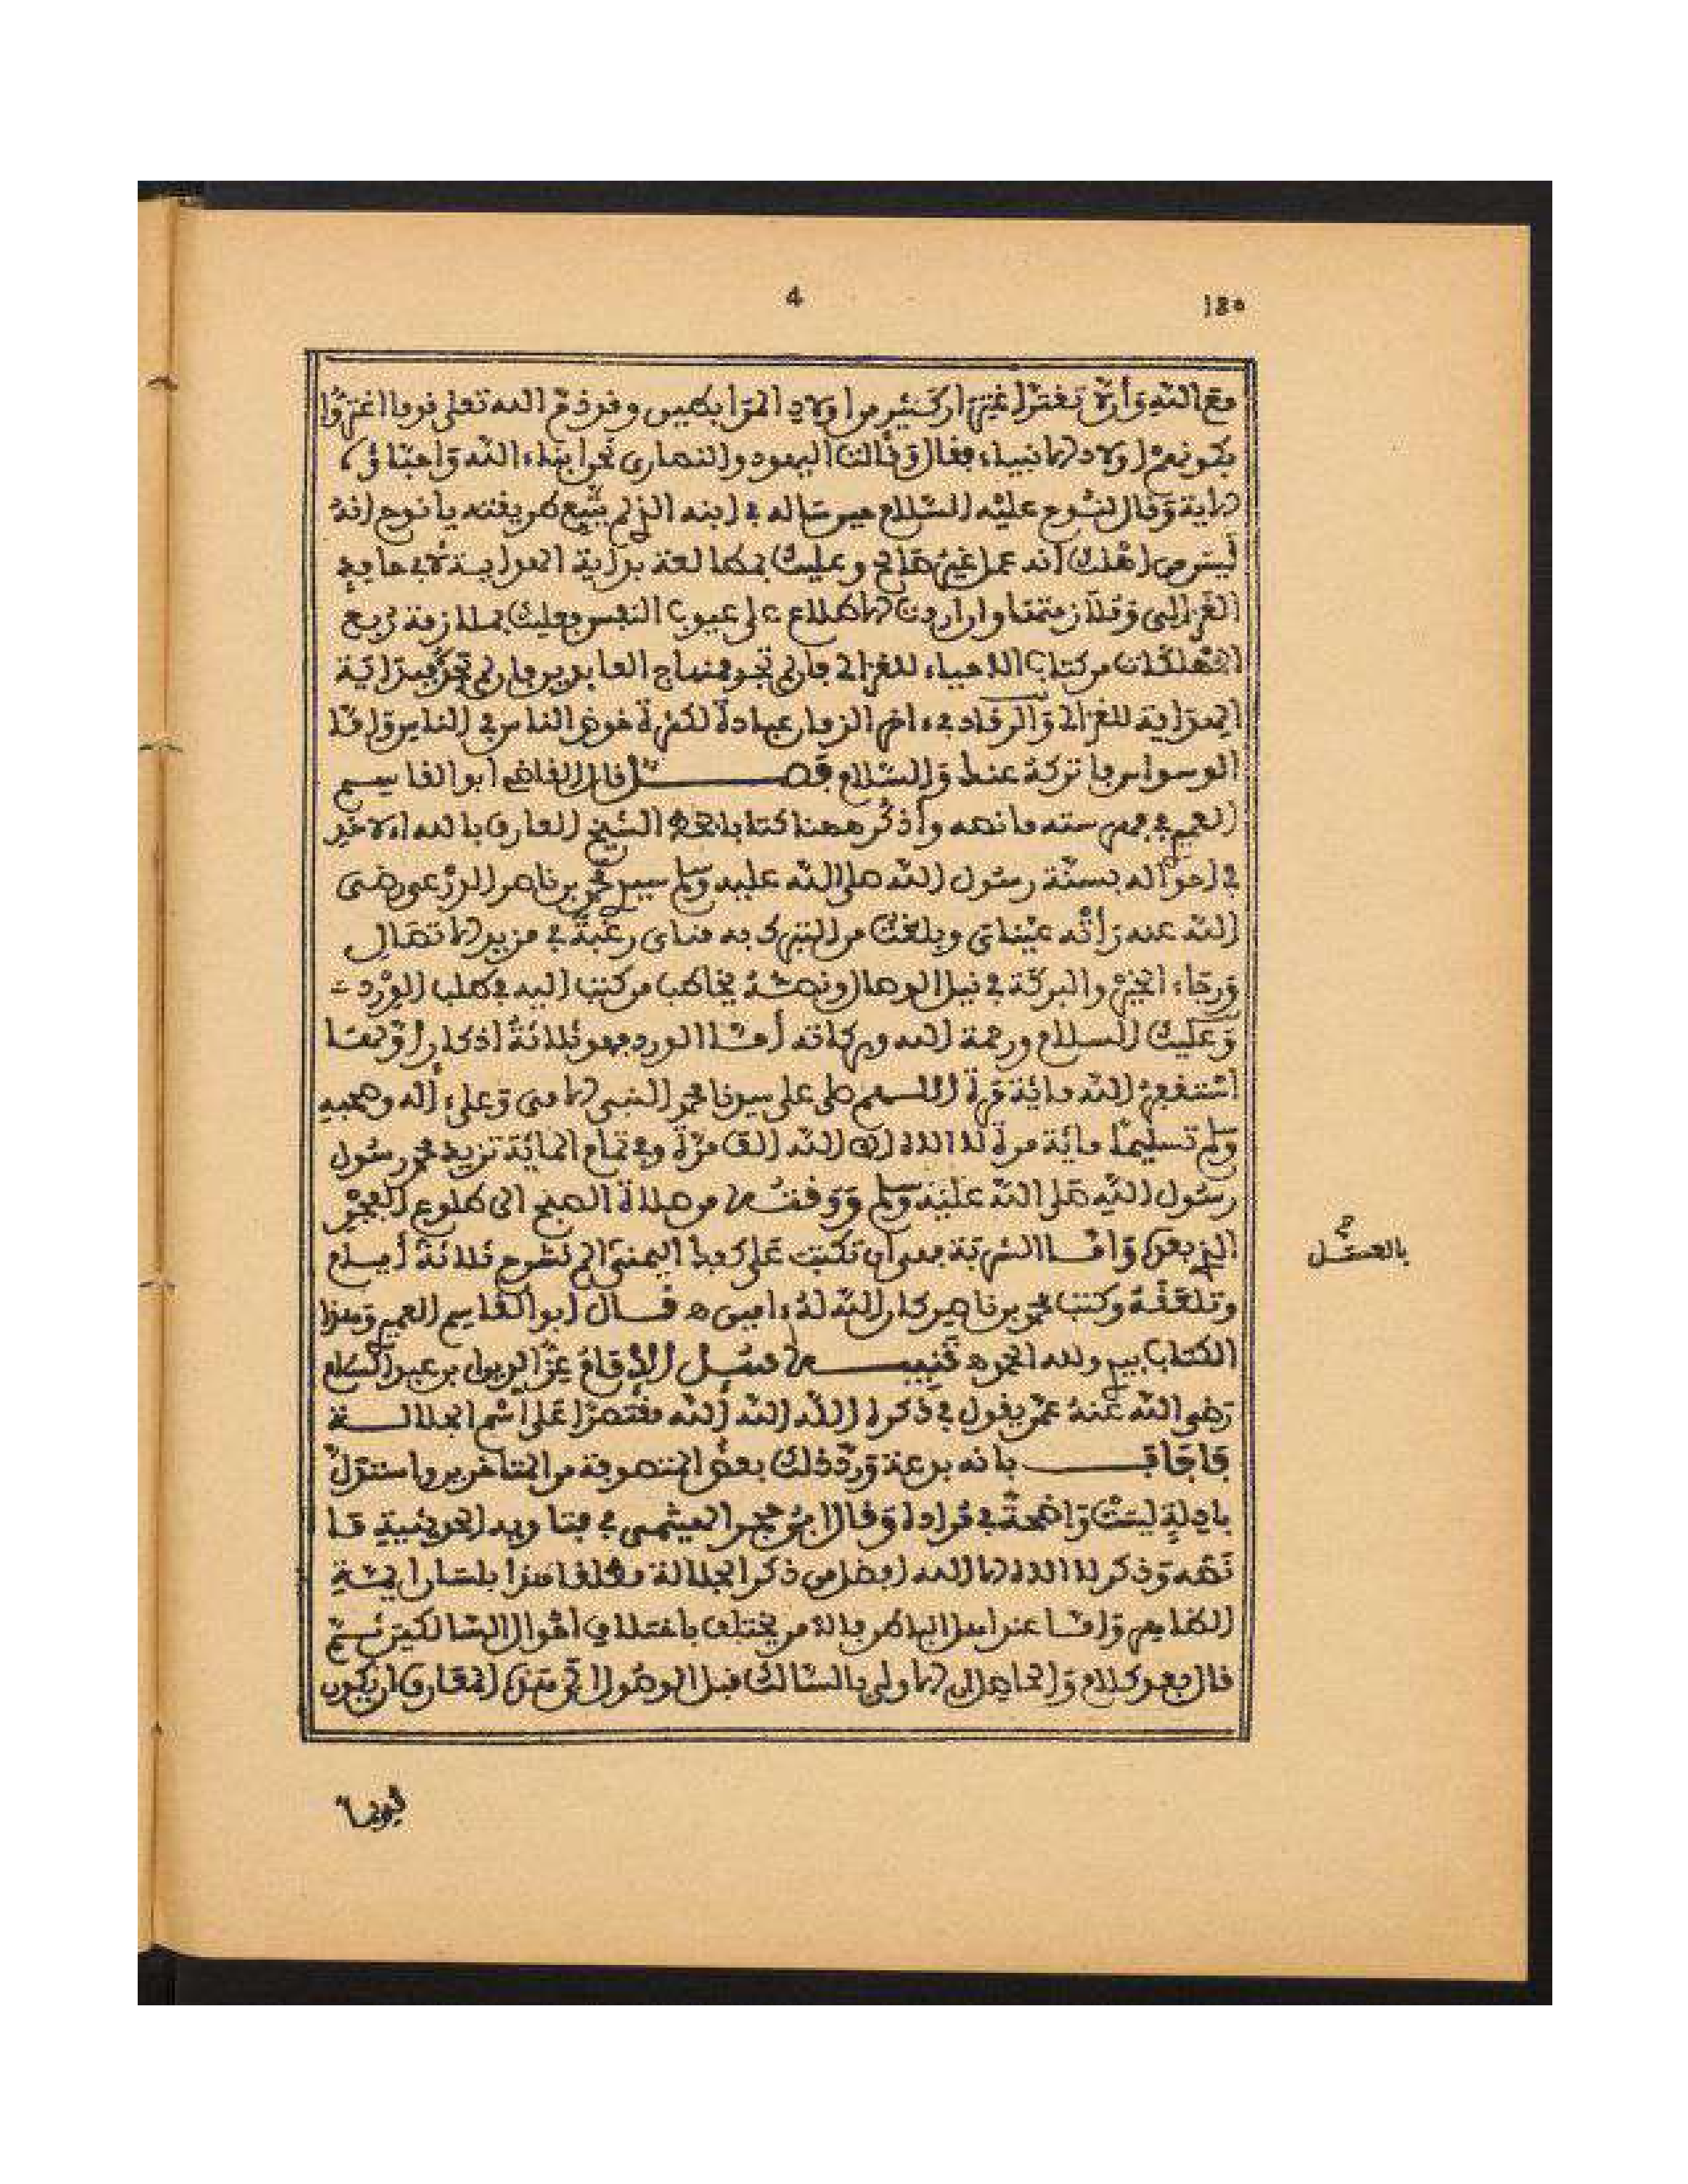 4
180
مع الله وأن لا تغتر اغترار كثير من أولاد المرابطين وقد ذم الله تعلى قوما اغتروا
بكونهم أولاد الأنبياء فقال وقالت اليهود والنصارى نحن أبناء الله وأحباؤه
الآية وقال لنوح عليه السلام حين سأله في ابنه الذي لم يتبع طريقته يا نوح إنه
ليس من أهلك إنه عمل غير صالح وعليك بمطالعة بداية الهداية لأبي حامد
الغزالي وملازمتها وإن أردت الاطلاع على عيوب النفس فعليك بملازمة ربع
المهلكات من كتاب الاحياء للغزالي فإن لم تجد فمنهاج العابدين فإن لم تجد فبداية
الهداية للغزالي والرقاد في ءاخر الزمان عبادة لكثرة خوض الناس في الناس وأما
الوسواس فاتركه عنك والسلام فصل قال القاضي أبو القاسم
العميري في فهرسته ما نصه وأذكر ههنا كتابا بخط الشيخ العارف بالله الآخذ
في أحواله بسنة رسول الله صلى الله عليه وسلم سيدي محمد بن ناصر الدرعي رضي
الله عنه رأته عيناي وبلغت من التبرك به مناي رغبة في مزيد الاتصال
ورجاء الخير والبركة في نيل الوصال ونصه يخاطب من كتب إليه في طلب الورد
وعليك السلام ورحمة الله وبركاته أما الورد فهو ثلاثة أذكار أولها
أستغفر الله مائة مرة اللهم صل على سيدنا محمد النبي الأمي وعلى ءاله وصحبه
وسلم تسليما مائة مرة لا اله الا الله ألف مرة وفي تمام المائة تزيد محمد رسول
رسول الله صلى الله عليه وسلم ووقته من صلاة الصبح الى طلوع الفجر
الذي بعده وأما الشربة فهو أن تكتب على كفك اليمنى ألم نشرح ثلاثة أيام
وتلعقه وكتب محمد بن ناصر كان الله له ءامين ه قال أبو القاسم العميري وهذا
بالعسل صح
الكتاب بيدي ولله الحمد ه تنبيه سئل الإمام عز الدين بن عبد السلام
رضي الله عنه عمن يقول في ذكره الله الله الله مقتصرا على اسم الجلالة
فأجاب بأنه بدعة ورد ذلك بعض المتصوفة من المتأخرين واستدل
بأدلة ليست واضحة في مراده وقال ابن حجر الهيثمي في فتاويه الحديثية ما
نصه وذكر لا اله الا الله أفضل من ذكر الجلالة مطلقا هذا بلسان أيمة
الظاهر وأما عند أهل الباطن فالأمر يختلف باختلاف أحوال السالكين ثم
قال بعد كلام والحاصل أن الأولى بالسالك قبل الوصول إلى هذه المعارف أن يكون